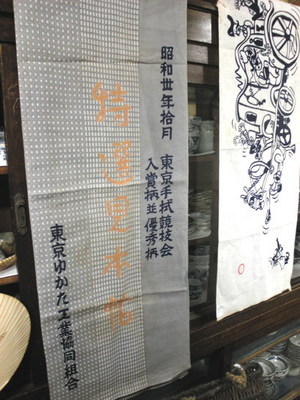 昭和卅年拾月　東京手拭競技会
入賞柄並優秀柄
特選見本帖
東京ゆかた工業協同組合